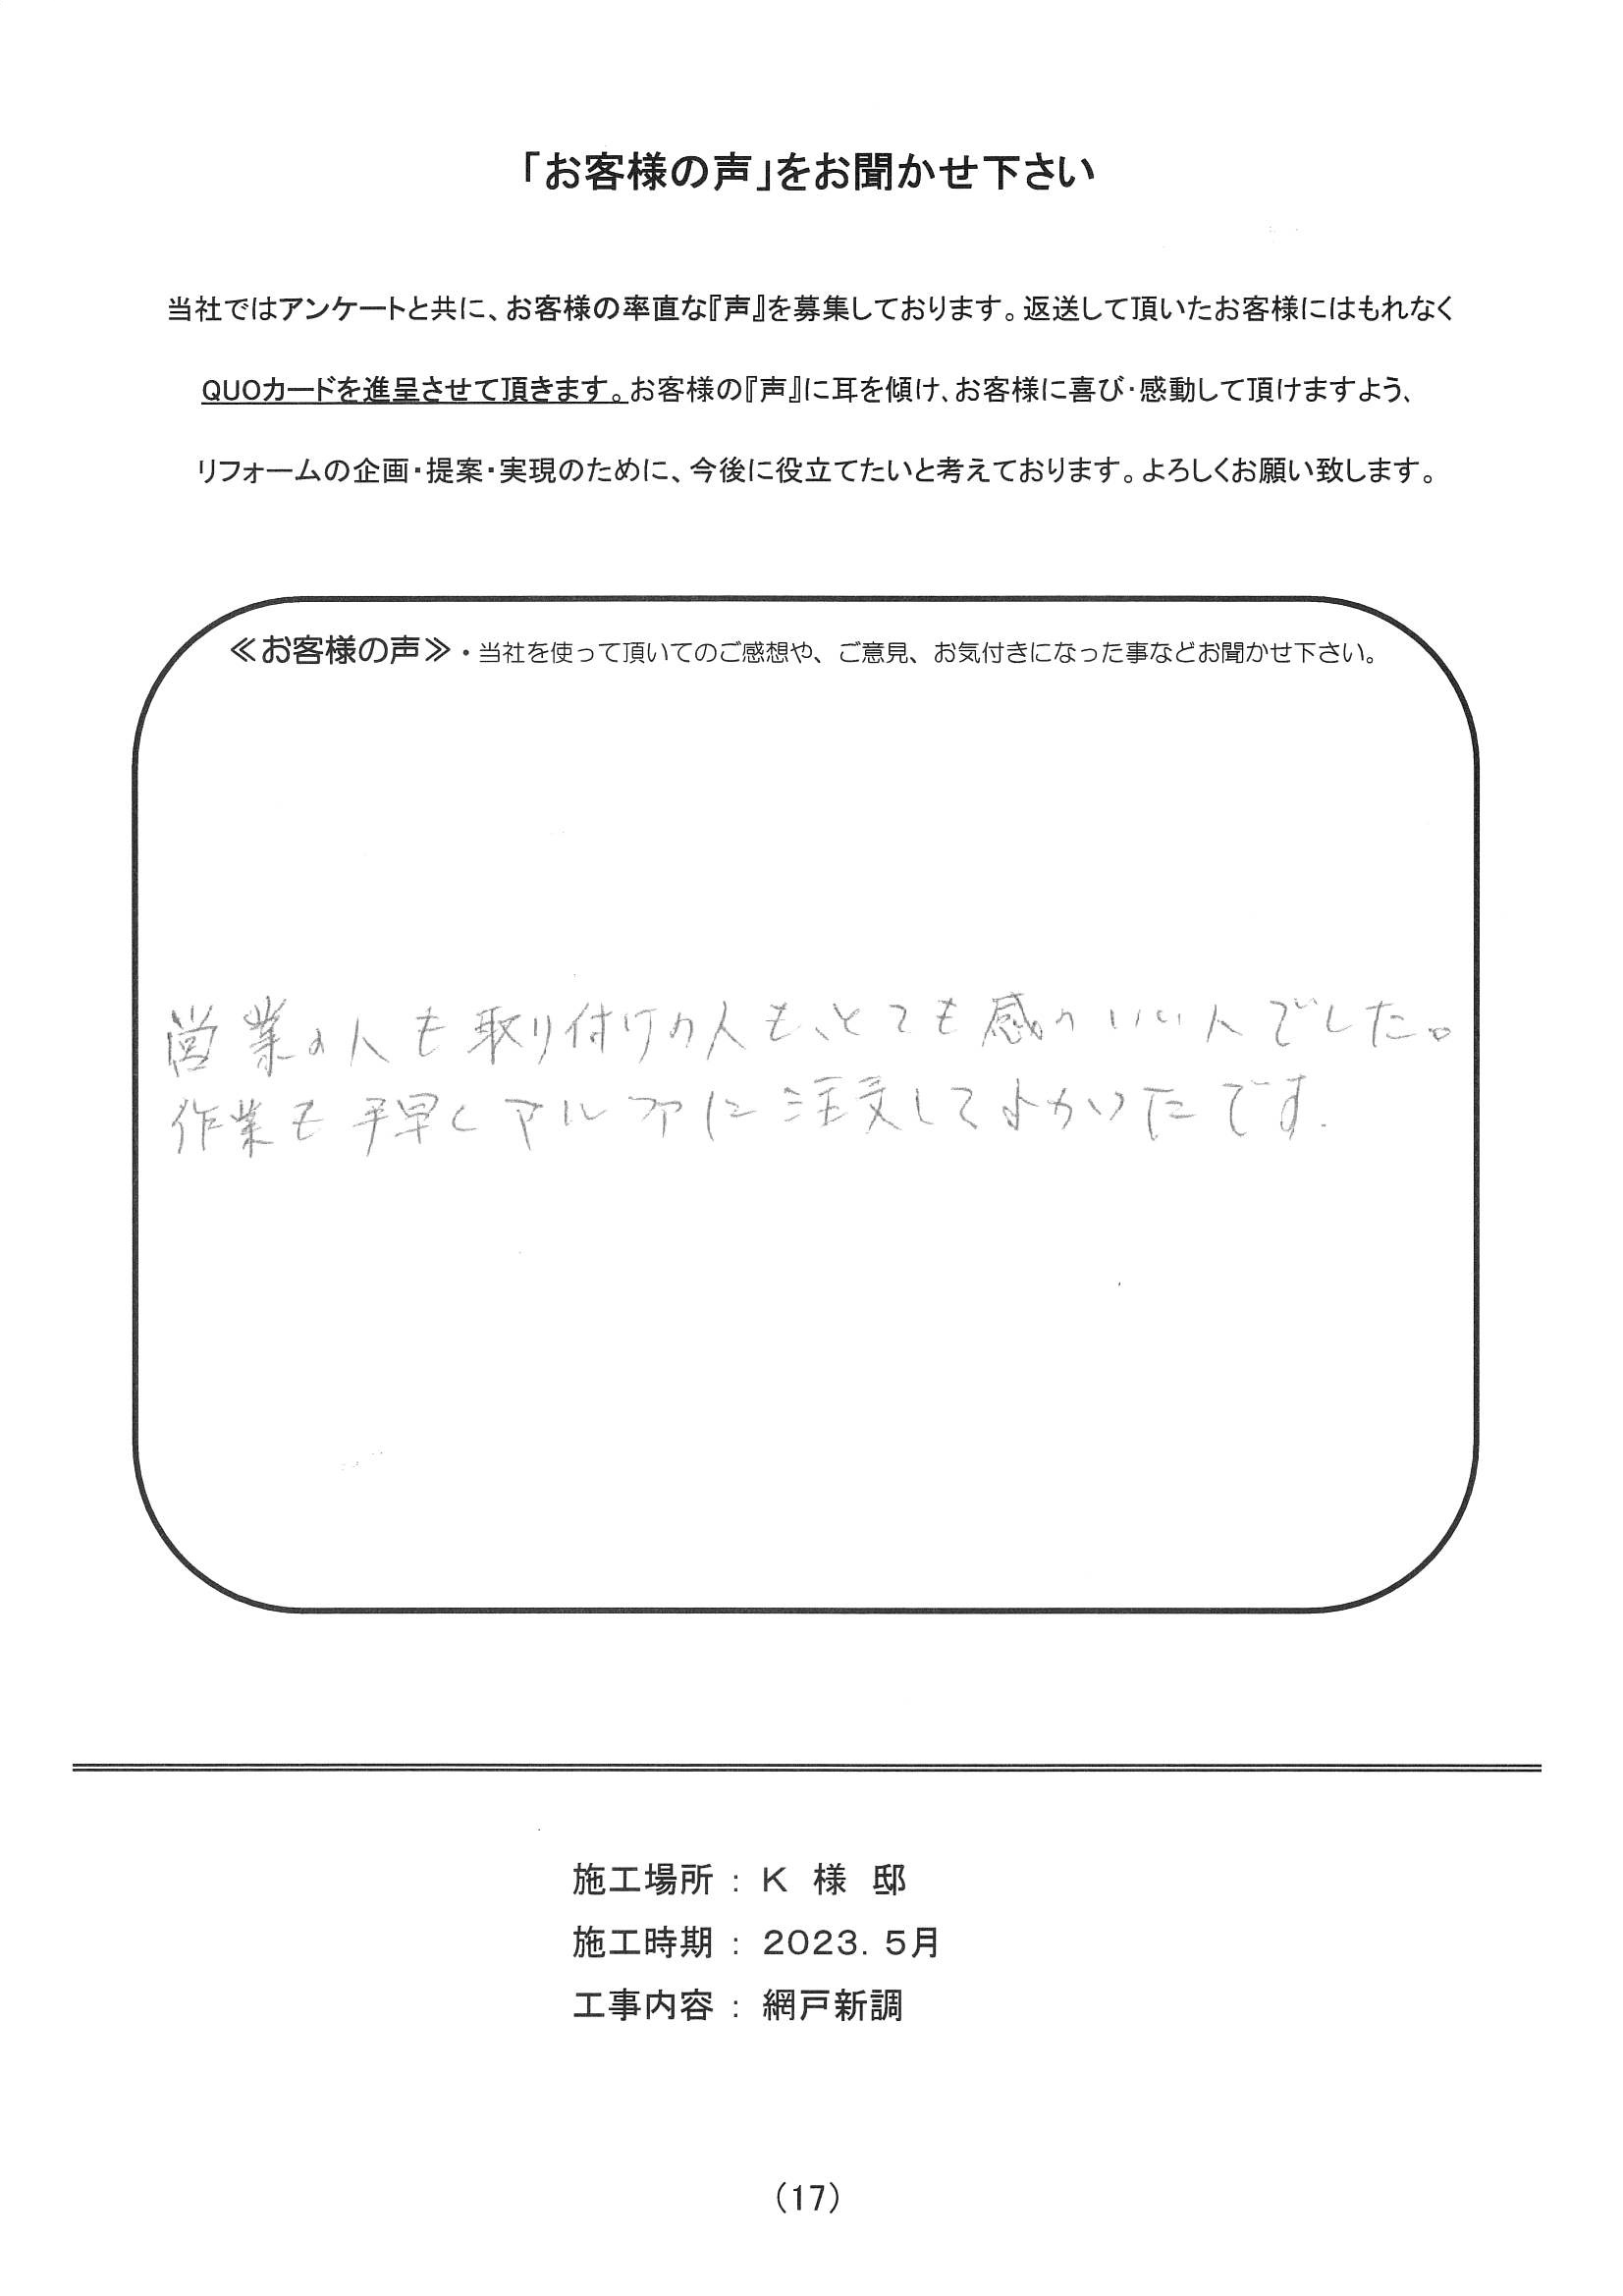 「お客様の声」をお聞かせ下さい
当社ではアンケートと共に、お客様の率直な『声』を募集しております。返送して頂いたお客様にはもれなく
QUOカードを進呈させて頂きます。お客様の『声』に耳を傾け、お客様に喜び・感動して頂けますよう、
リフォームの企画・提案・実現のために、今後に役立てたいと考えております。よろしくお願い致します。
≪お客様の声≫・当社を使って頂いてのご感想や、ご意見、お気付きになった事などお聞かせ下さい。
営業の人も取り付けの人も、とても感のいい人でした。
作業も手早くアルファに注文してよかったです.
施工場所 : K 様 邸
施工時期 : 2023. 5月
工事内容 : 網戸新調
(17)